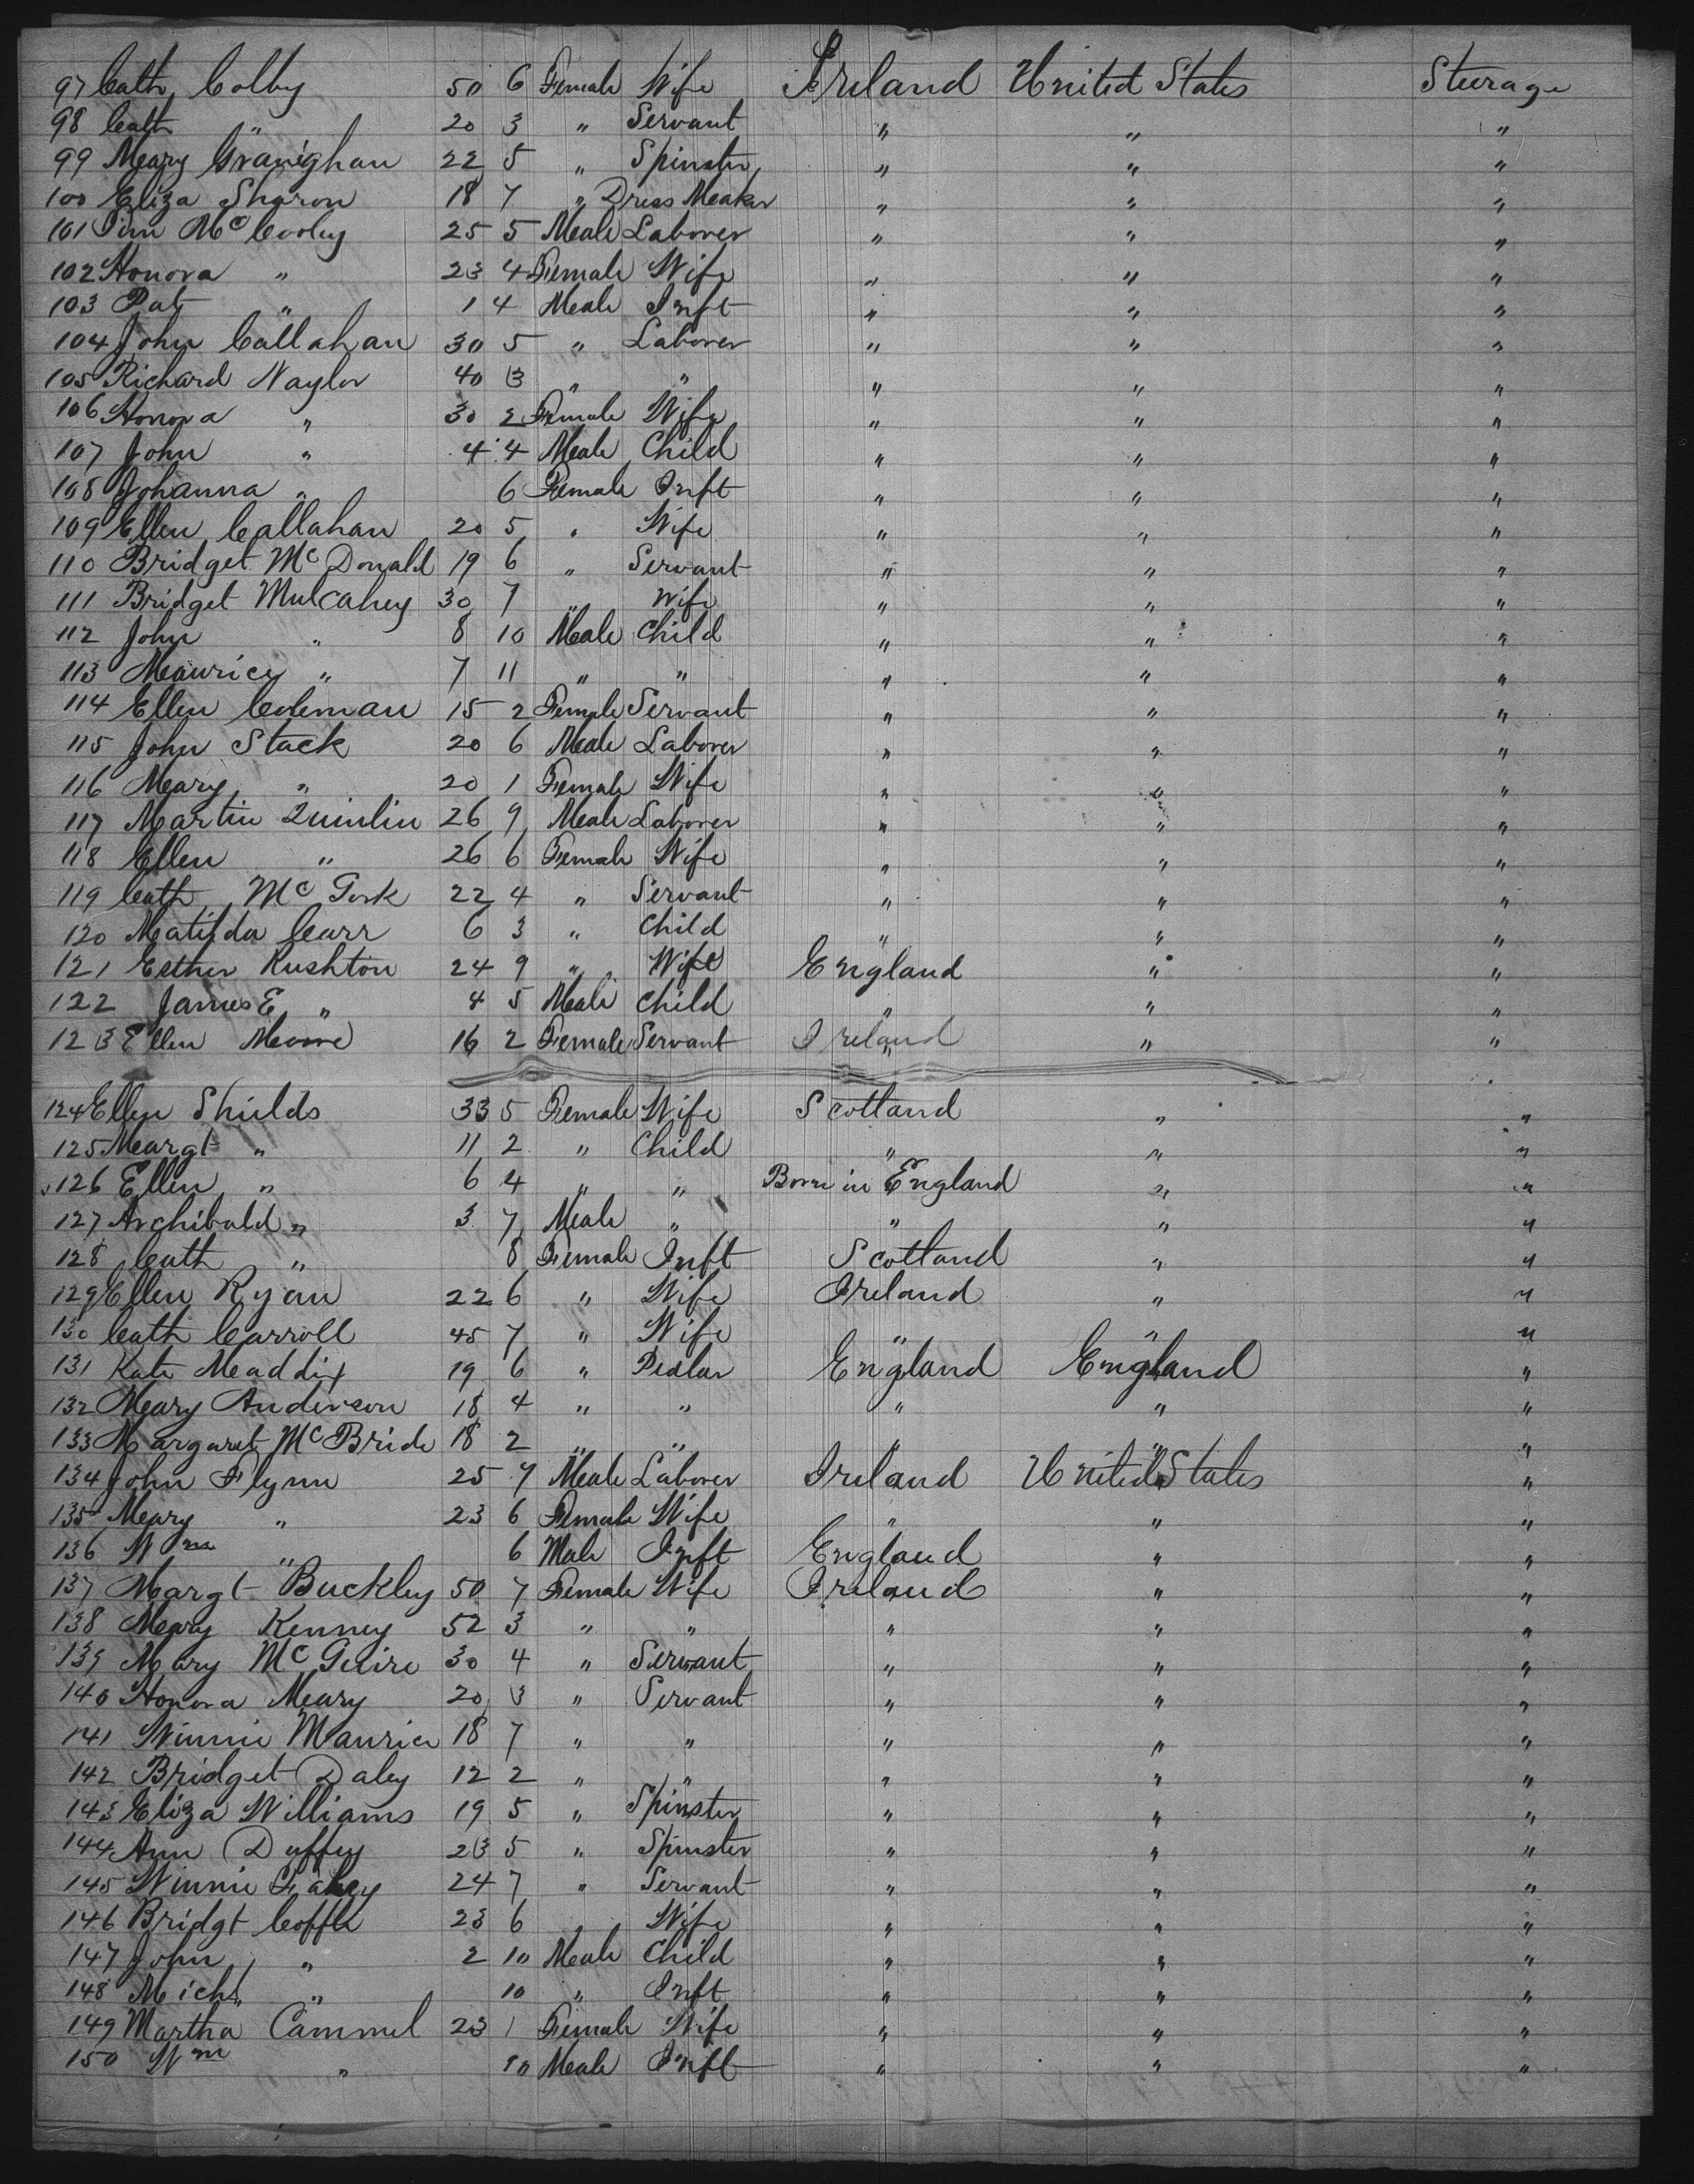 97 Cath Colby 50 6 Female Wife Ireland United States Steerage
98 Cath " 20 3 " Servant " " "
99 Mary Granighan 22 5 " Spinster " " "
100 Eliza Sharon 18 7 " Dress Maker " " "
101 Pim Mc Cooley 25 5 Male Laborer " " "
102 Honora " 23 4 Female Wife " " "
103 Pat " 1 4 Male Inft " " "
104 John Callahan 30 5 " Laborer " " "
105 Richard Naylor 40 3 " " " " "
106 Honora " 30 2 Female Wife " " "
107 John " 4 4 Male Child " " "
108 Johanna " 6 Female Inft " " "
109 Ellen Callahan 20 5 " Wife " " "
110 Bridget Mc Donald 19 6 " Servant " " "
111 Bridget Mulcahey 30 7 " Wife " " "
112 John " 8 10 Male Child " " "
113 Maurice " 7 11 " " " " "
114 Ellen Coleman 15 2 Female Servant " " "
115 John Stack 20 6 Male Laborer " " "
116 Mary " 20 1 Female Wife " " "
117 Martin Quinlin 26 9 Male Laborer " " "
118 Ellen " 26 6 Female Wife " " "
119 Cath Mc Gork 22 4 " Servant " " "
120 Matilda Carr 6 3 " Child " " "
121 Esther Rushton 24 9 " Wife England " "
122 James E " 4 5 Male Child " " "
123 Ellen Moore 16 2 Female Servant Ireland " "
124 Ellen Shields 33 5 Female Wife Scotland " "
125 Margt " 11 2 " Child " " "
126 Ellen " 6 4 " " Born in England " "
127 Archibald " 3 7 Male " " " "
128 Cath " 8 Female Inft Scotland " "
129 Ellen Ryan 22 6 " Wife Ireland " "
130 Cath Carroll 45 7 " Wife " " "
131 Kate Maddix 19 6 " Pedlar England England "
132 Mary Anderson 18 4 " " " " "
133 Margaret Mc Bride 18 2 " " " " "
134 John Flynn 25 7 Male Laborer Ireland United States "
135 Mary " 23 6 Female Wife " " "
136 Wm " 6 Male Inft England " "
137 Margt Buckley 50 7 Female Wife Ireland " "
138 Mary Kenney 52 3 " " " " "
139 Mary Mc Guire 30 4 " Servant " " "
140 Honora Meary 20 3 " Servant " " "
141 Winnie Maurice 18 7 " " " " "
142 Bridget Daley 12 2 " " " " "
143 Eliza Williams 19 5 " Spinster " " "
144 Ann Duffey 23 5 " Spinster " " "
145 Winnie Fahey 24 7 " Servant " " "
146 Bridgt Coffee 23 6 " Wife " " "
147 John " 2 10 Male Child " " "
148 Michl " 10 " Inft " " "
149 Martha Cammel 23 1 Female Wife " " "
150 Wm " 10 Male Inft " " "